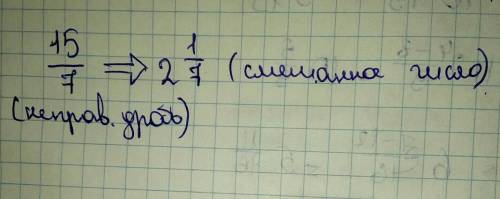 15/7 ⇒ 2 1/7 (смешанное число)
(неправ. дробь)